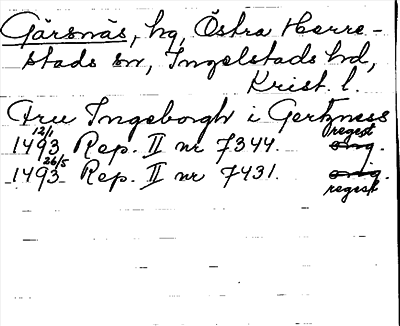 Gärsnäs, hg, Östra Herre-
stads sn, Ingelstads hd,
Krist. l.
Fru Ingeborgh i Gertzness
12/1 1493 Rep. II nr 7344. orig. regest
26/5 1493 Rep. II nr 7431. orig. regest